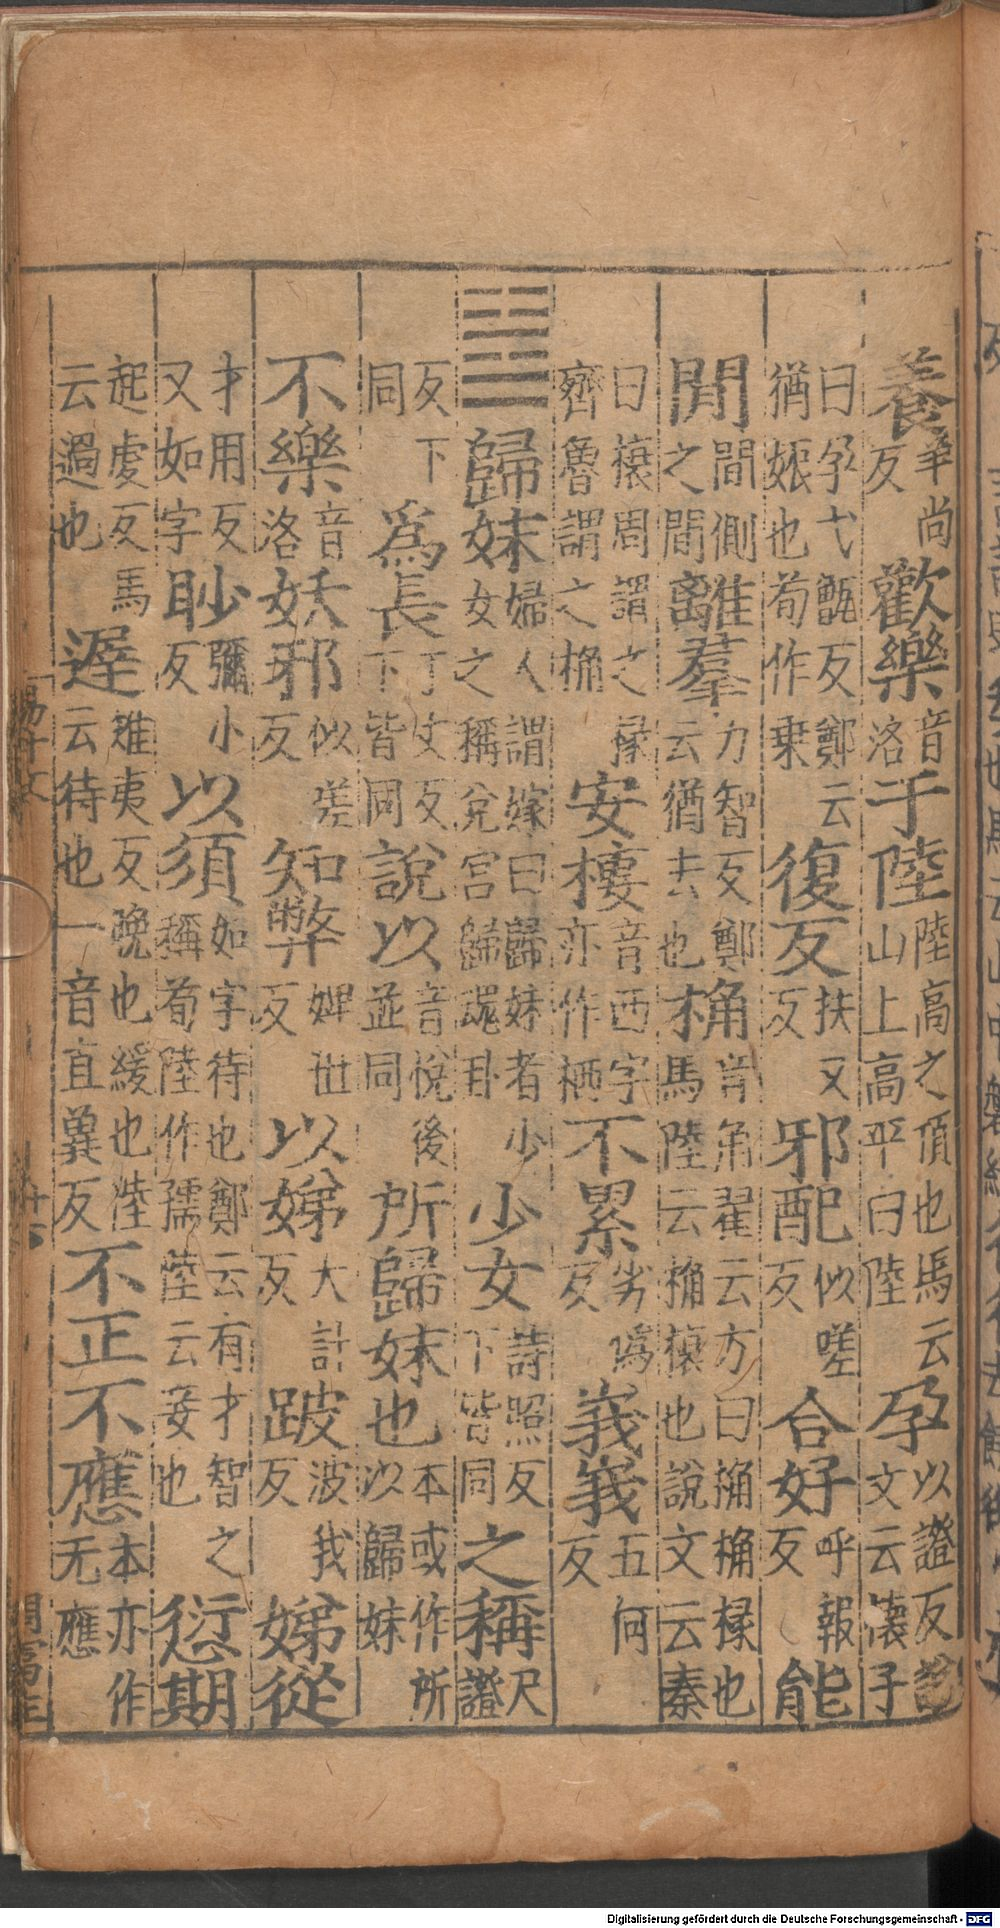 養羊尚反歡樂音洛于陸陸高之頂也馬云山上高平曰陸孕以證反說文云懐子
曰孕弋甑反鄭云猶娠也荀作乗復反扶又反邪配似嗟反合好呼報反能
閒閒側之閒離羣力智反鄭云猶去也桷音角翟云方曰桷桷椽也馬陸云桷榱也說文云秦
曰榱周謂之椽齊魯謂之桷安棲音西字亦作栖不累劣僞反峩峩五何反
䷵歸妹婦人謂嫁曰歸妹者少女之稱兌宫歸魂卦少女詩照反下皆同之稱尺證
反下同爲長丁丈反下皆同說以音悅後並同所歸妹也本或作所以歸妹
不樂音洛妖邪似嗟反知弊婢世反以娣大計反跛波我反娣從
才用反又如字眇彌小反以須如字待也鄭云有才智之稱荀陸作孺陸云妾也愆期
起虔反馬云過也遲雉夷反晚也緩也陸云待也一音直兾反不正不應本亦作无應
Digitalisierung gefördert durch die Deutsche Forschungsgemeinschaft - DFG